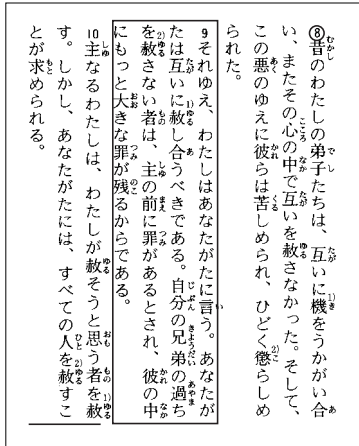 ⑧昔のわたしの弟子たちは、互いに機をうかがい合
い、またその心の中で互いを赦さなかった。そして、
この悪のゆえに彼らは苦しめられ、ひどく懲らしめ
られた。
9 それゆえ、わたしはあなたがたに言う。あなたが
たは互いに赦し合うべきである。自分の兄弟の過ち
を赦さない者は、主の前に罪があるとされ、彼の中
にもっと大きな罪が残るからである。
10 主なるわたしは、わたしが赦そうと思う者を赦
す。しかし、あなたがたには、すべての人を赦すこ
とが求められる。